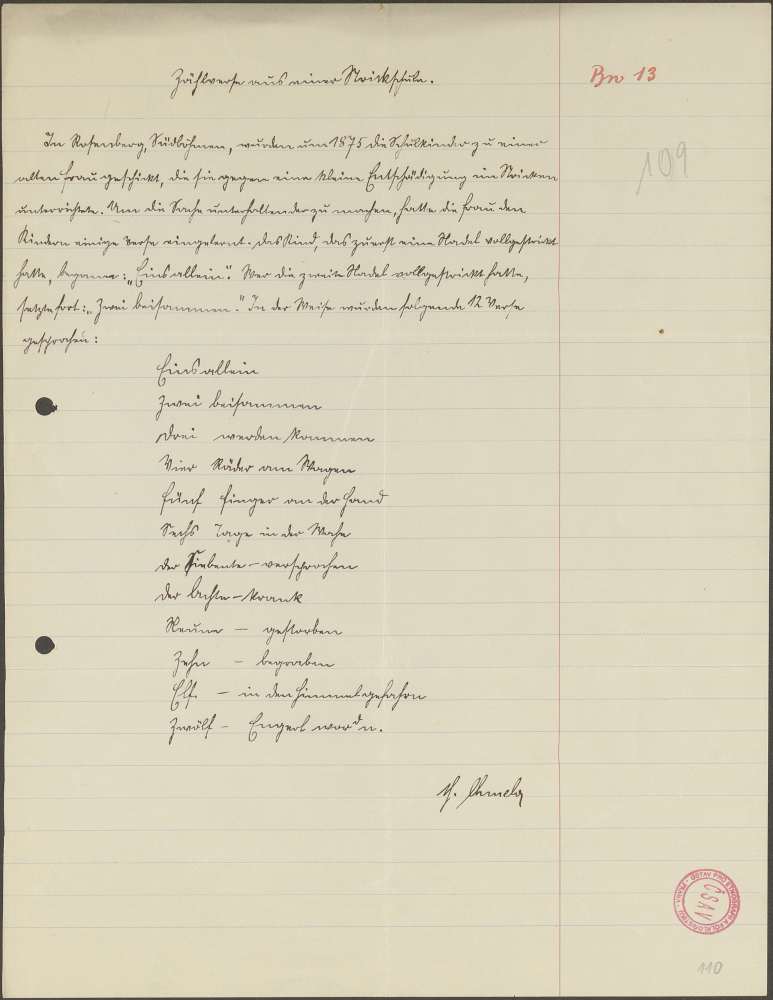 Zählverse aus einer Strickschule.
Bn 13
In Rosenberg, Südböhmen, wurden um 1875 die Schulkinder zu einer
109
alten Frau geschickt, die sie gegen eine kleine Entschädigung im Stricken
unterrichtete. Um die Sache unterhaltender zu machen, hatte die Frau den
Kindern einige Verse eingelernt. Das Kind, das zuerst eine Nadel vollgestrickt
hatte, begann: „Eins allein". Wer die zweite Nadel vollgestrickt hatte,
setzte fort: „Zwei beisammen." In der Weise wurden folgende 12 Verse
gesprochen:
Eins allein
Zwei beisammen
Drei werden kommen
Vier Räder am Wagen
Fünf Finger an der Hand
Sechs Tage in der Woche
der Siebente – versprochen
der Achte – krank
Neune – gestorben
Zehn – begraben
Elf – in den Himmel gefahrn
Zwölf – Engerl word'n.
ÚSTAV PRO ETNOGRAFII A FOLKLORISTIKU · PRAHA ·
ČSAV
110